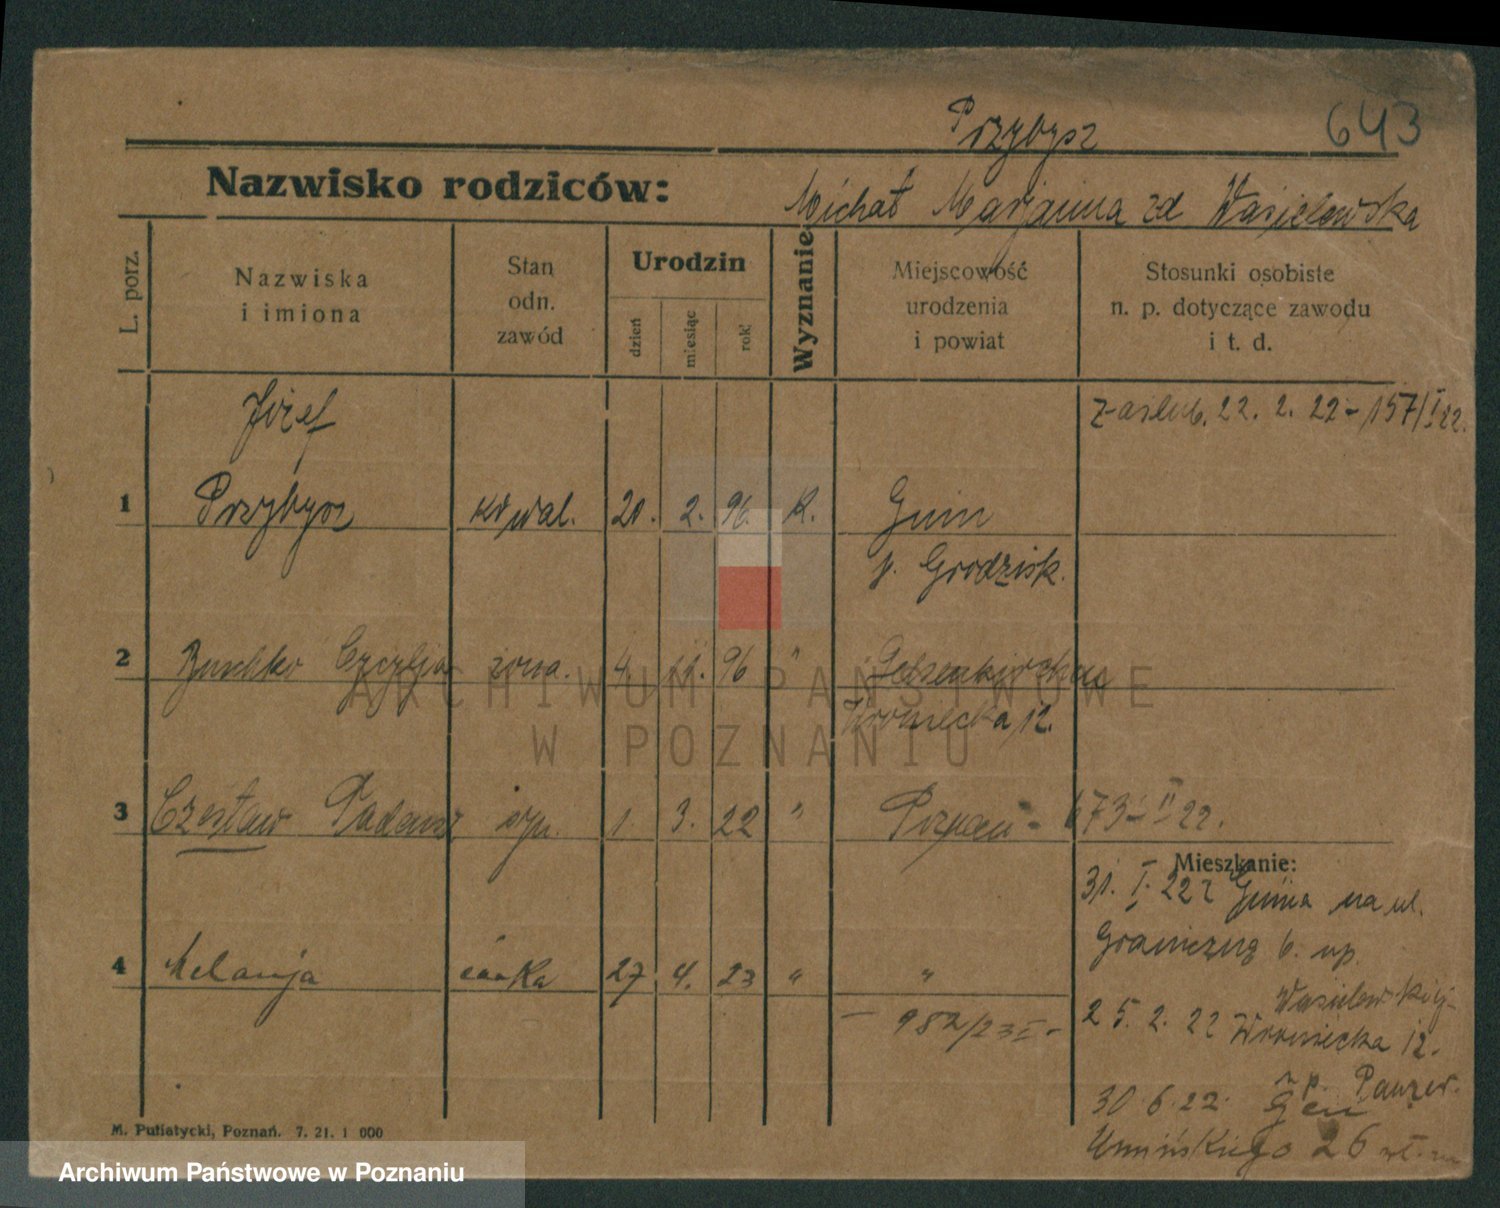 Przybysz 643
Nazwisko rodziców: Michał Marjanna zd Wasielewska
L. porz.
Nazwiska i imiona
Stan odn. zawód
Urodzin
dzień
miesiąc
rok
Wyznanie
Miejscowość urodzenia i powiat
Stosunki osobiste n. p. dotyczące zawodu i t. d.
Józef zaślub. 22. 2. 22 - 157/I 22.
1 Przybysz kowal. 20. 2. 96. K.
p. Grodzisk.
2 żona. 4. 11. 96 "
Wroniecka 12.
3 Czesław syn. 1. 3. 22 " Poznań - 673 - II 22.
Mieszkanie:
31. I. 22 z na ul.
Graniczną 6. up.
4 Melanja córka 27. 4. 23 " "
Wasielewskiej
- 982/23 I - 25. 2. 22 Wroniecka 12.
30. 6. 22. Gen
Umińskiego 26
M. Putiatycki, Poznań. 7. 21. 1 000
ARCHIWUM PAŃSTWOWE
W POZNANIU
Archiwum Państwowe w Poznaniu